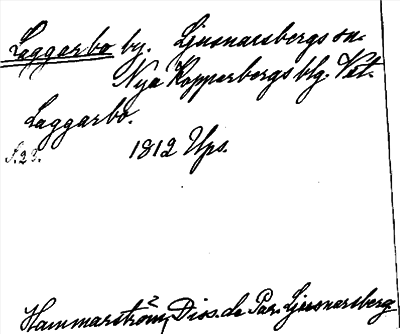 Laggarbo by. Ljusnarsbergs sn.
Nya Kopparbergs blg. Vst.
Laggarbo.
S. 22. 1812 Ups.
Hammarström, Diss. de Par. Ljusnarsberg